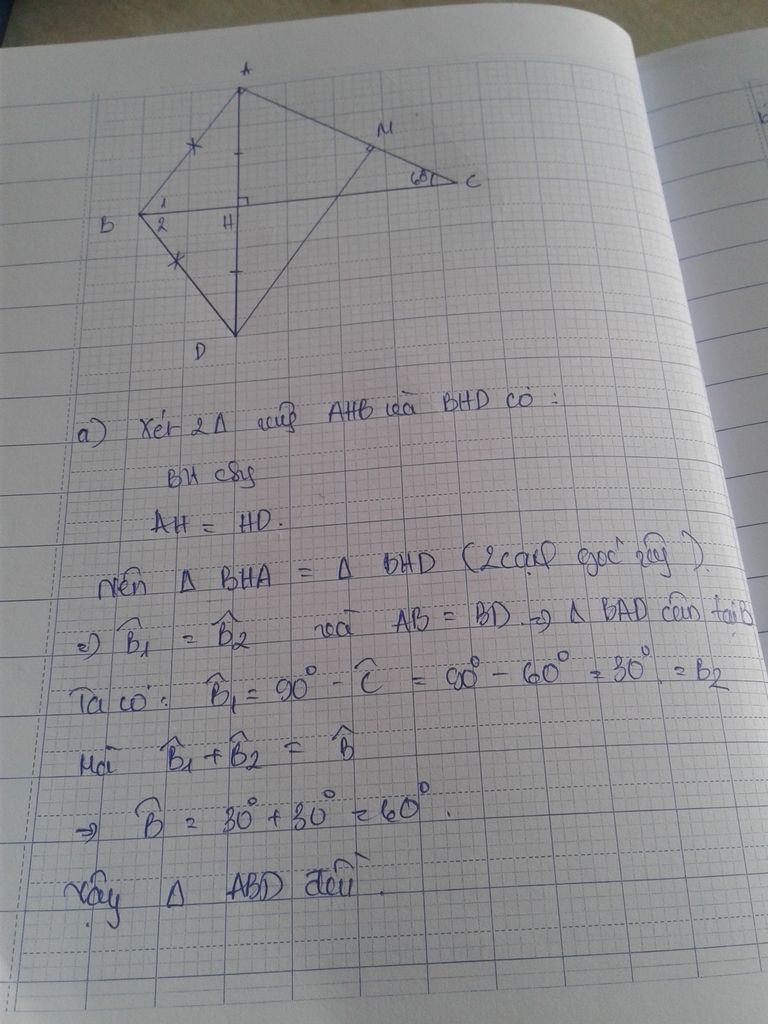 A
M
60°
C
B
1
2
H
D
a) Xét 2 Δ vuông AHB và BHD có :
BH chung
AH = HD.
Nên Δ BHA = Δ BHD (2 cạnh góc vuông)
=) B̂₁ = B̂₂ và AB = BD. => Δ BAD cân tại B
Ta có : B̂₁ = 90° - Ĉ = 90° - 60° = 30°. = B₂
Mà B̂₁ + B̂₂ = B̂
=> B̂ = 30° + 30° = 60°.
Vậy Δ ABD đều.